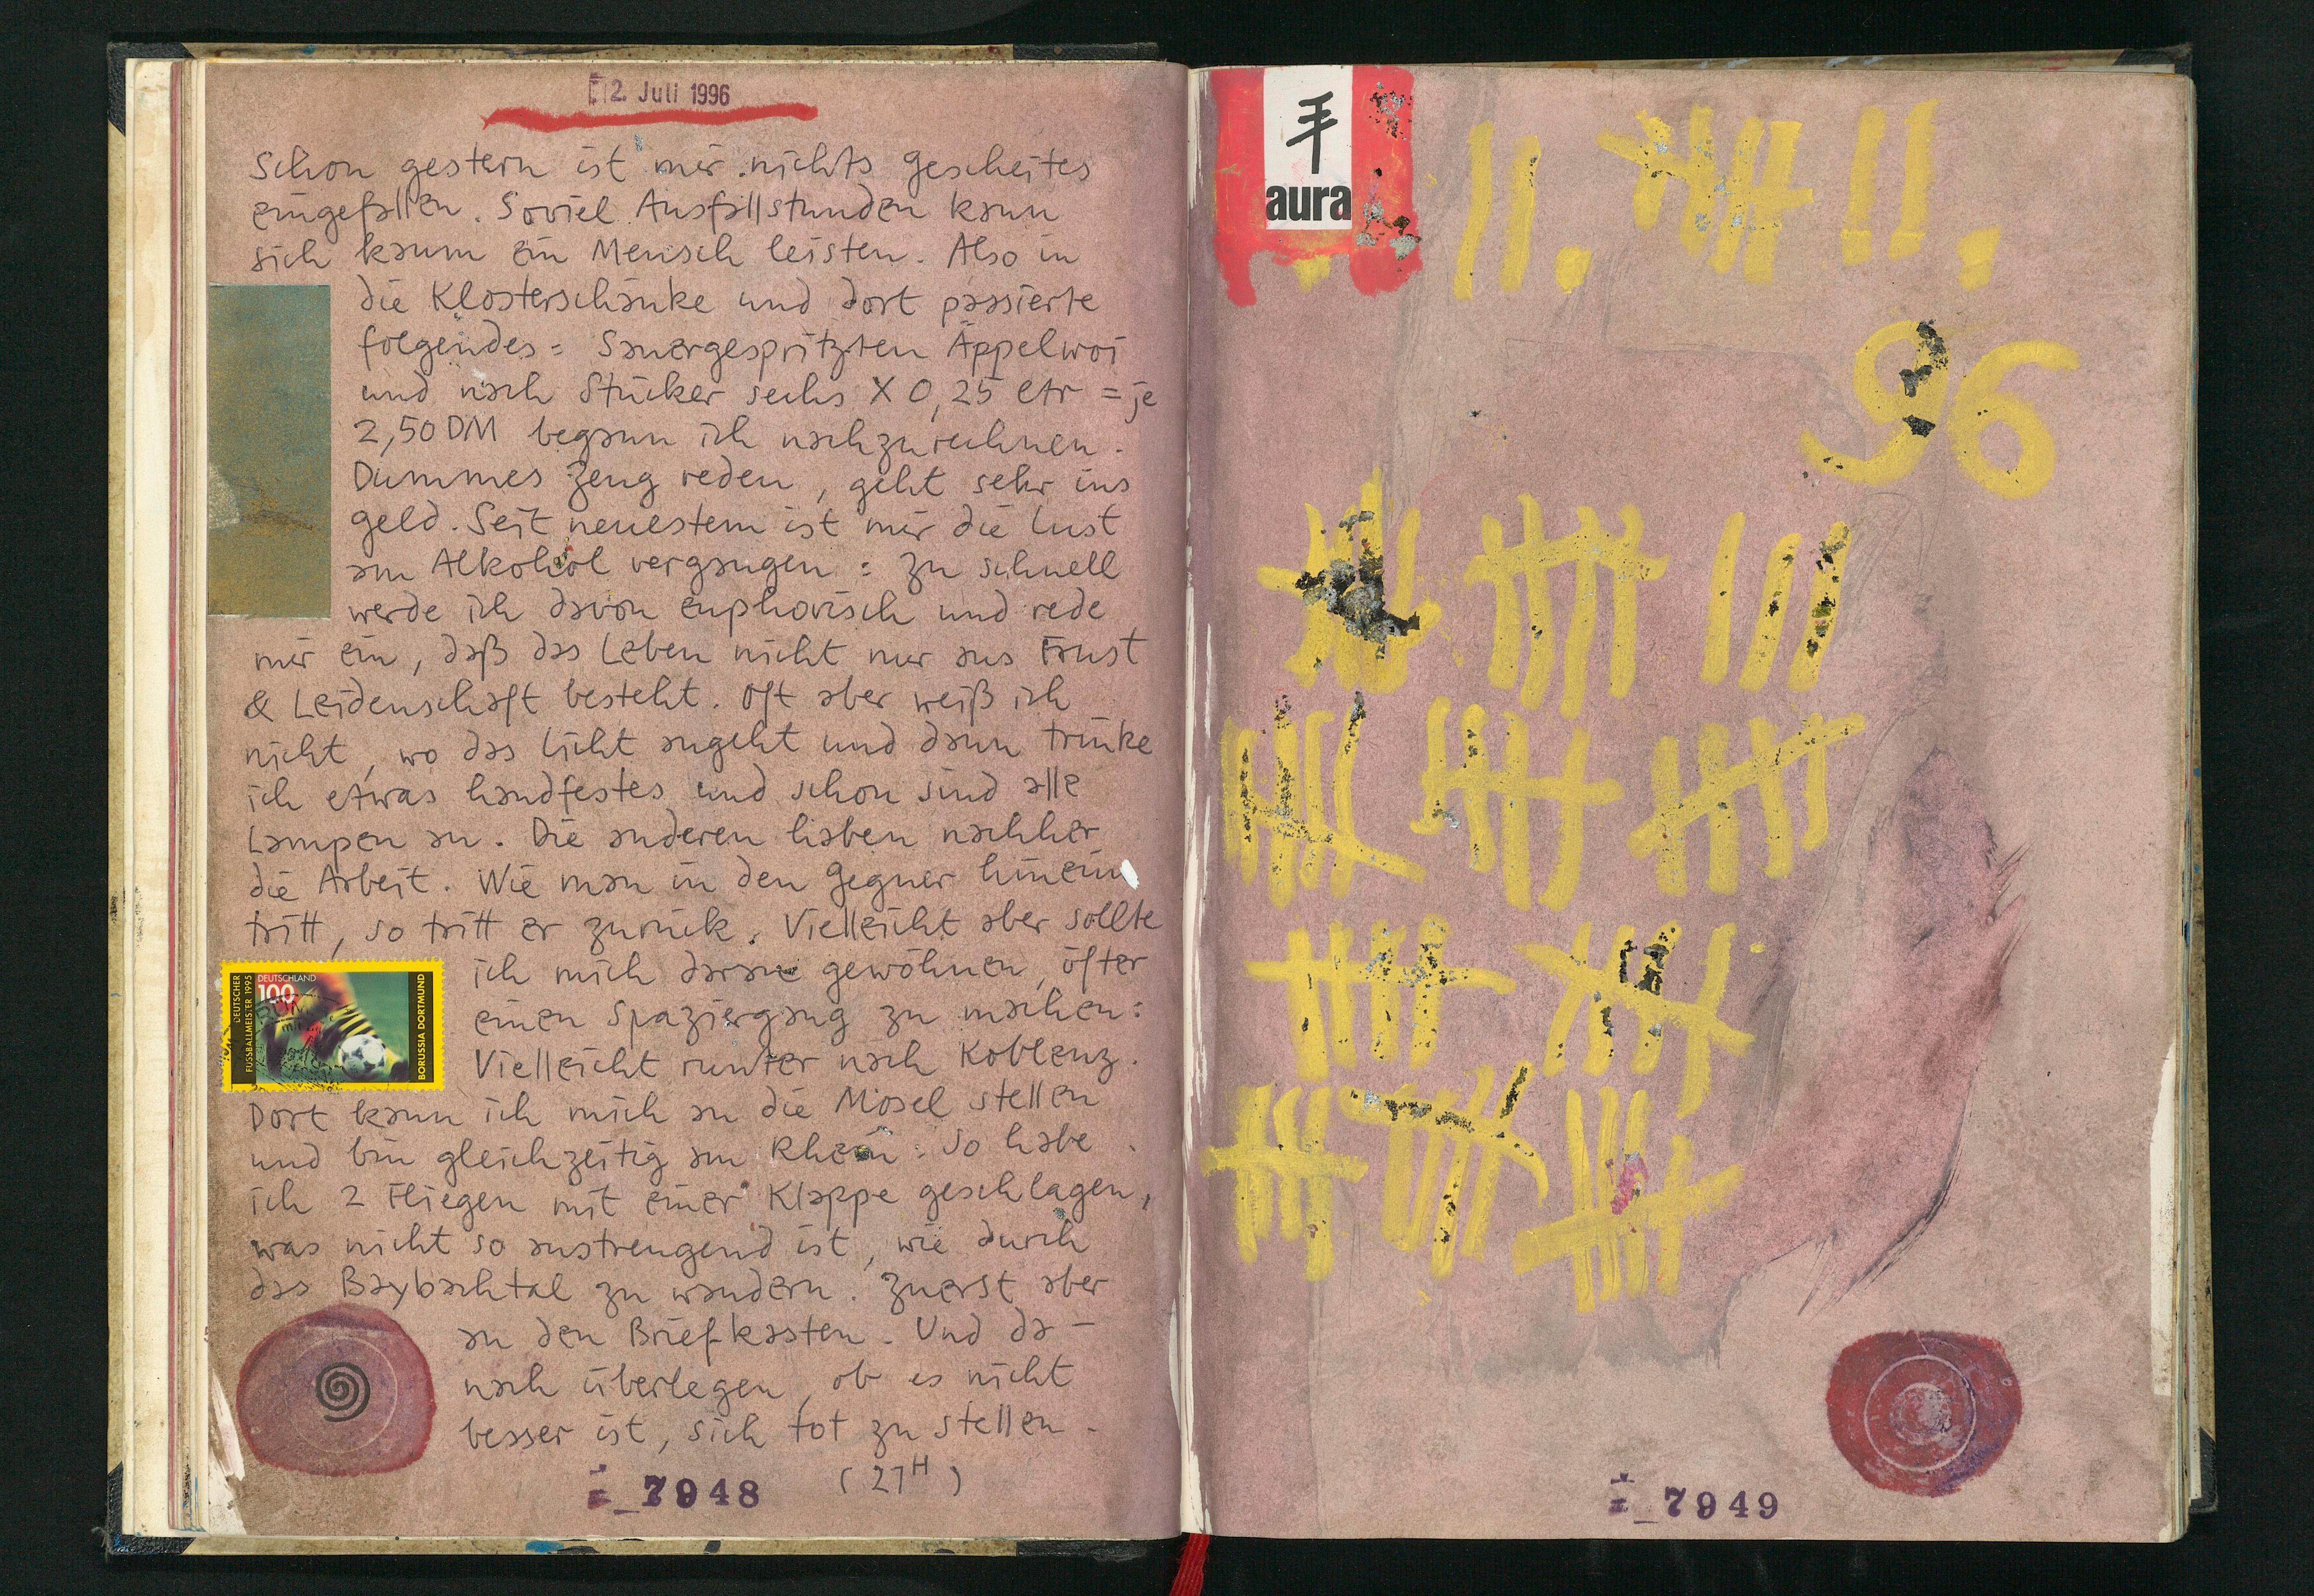 2. Juli 1996
Schon gestern ist mir nichts gescheites
eingefallen. Soviel Ausfallstunden kann
sich kaum ein Mensch leisten. Also in
die Klosterschänke und dort passierte
folgendes: Sauergespritzten Äppelwoi
und nach Stücker sechs X 0,25 ltr = je
2,50 DM begann ich nachzurechnen.
Dummes Zeug reden, geht sehr ins
geld. Seit neuestem ist mir die Lust
am Alkohol vergangen: zu schnell
werde ich davon euphorisch und rede
mir ein, daß das Leben nicht nur aus Frust
& Leidenschaft besteht. Oft aber weiß ich
nicht, wo das Licht angeht und dann trinke
ich etwas handfestes und schon sind alle
Lampen an. Die anderen haben nachher
die Arbeit. Wie man in den Gegner hinein
tritt, so tritt er zurück. Vielleicht aber sollte
ich mich daran gewöhnen, öfter
einen Spaziergang zu machen:
Vielleicht runter nach Koblenz.
Dort kann ich mich an die Mosel stellen
und bin gleichzeitig am Rhein: So habe
ich 2 Fliegen mit einer Klappe geschlagen,
was nicht so anstrengend ist, wie durch
das Baybachtal zu wandern. Zuerst aber
an den Briefkasten. Und da-
nach überlegen, ob es nicht
besser ist, sich tot zu stellen.
(21H)
7948
DEUTSCHER
FUSSBALLMEISTER 1995
DEUTSCHLAND
100
BORUSSIA DORTMUND
aura
96
7949